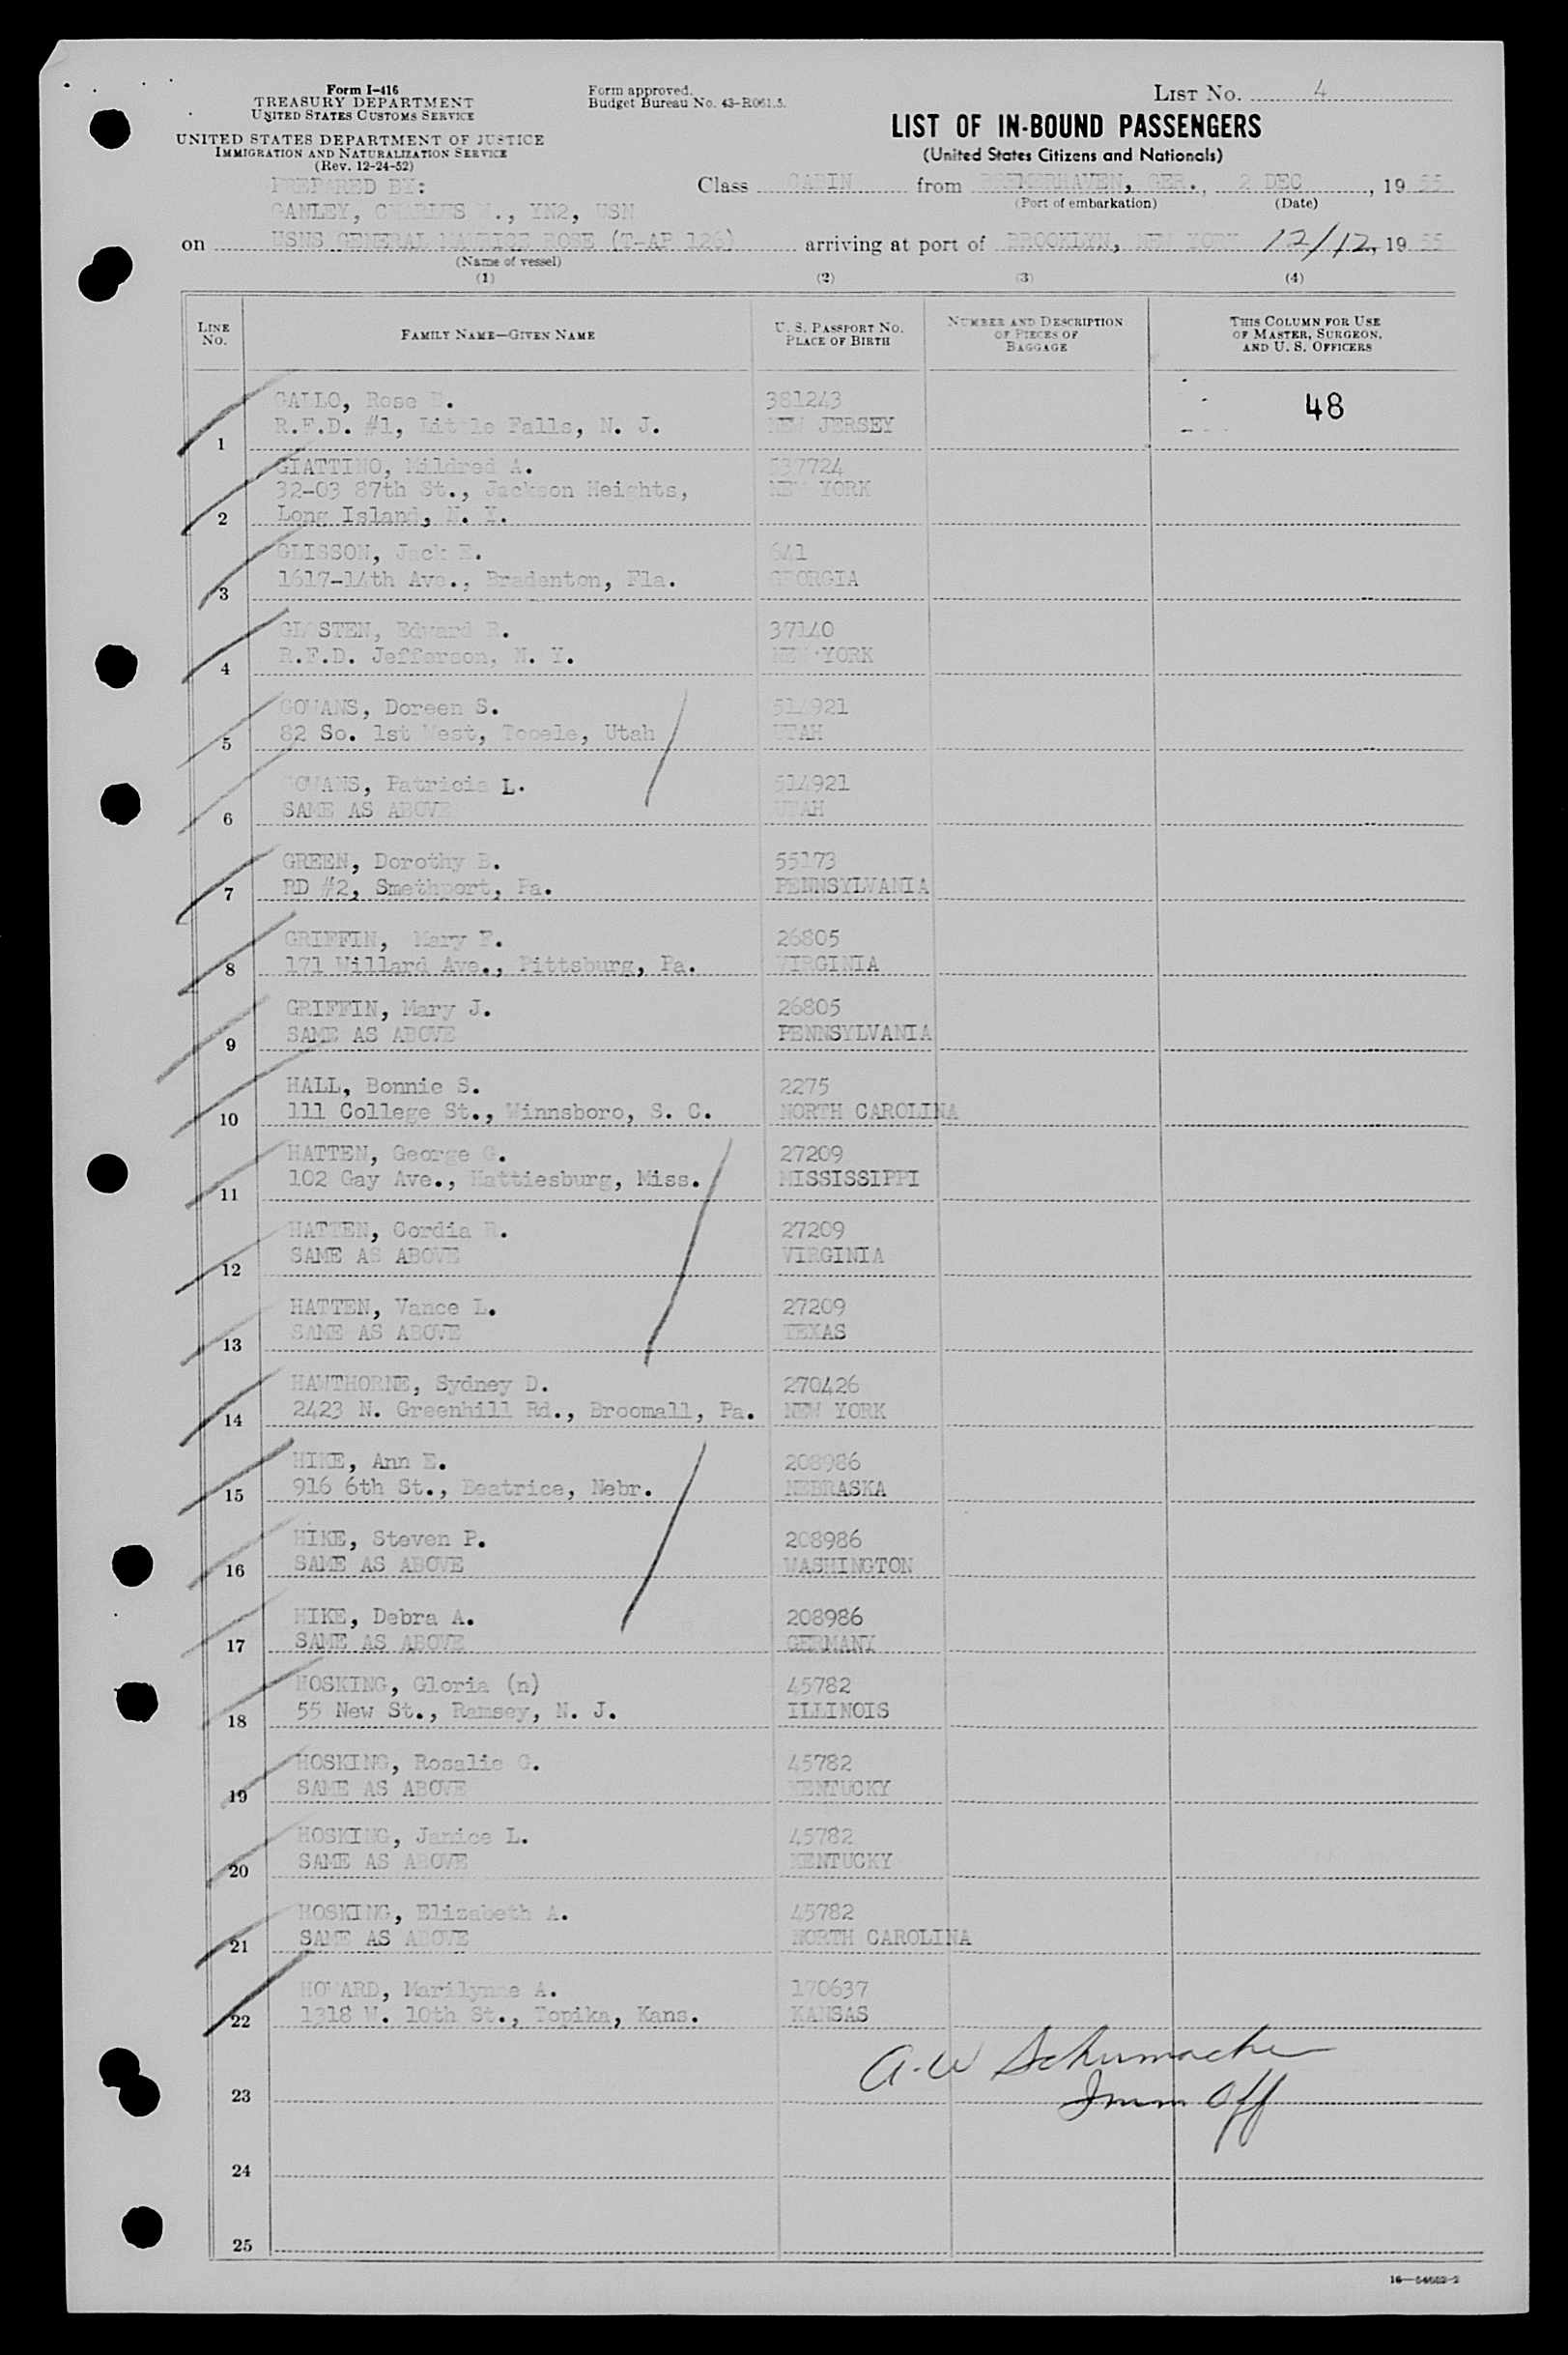 Form I-416
TREASURY DEPARTMENT
UNITED STATES CUSTOMS SERVICE
UNITED STATES DEPARTMENT OF JUSTICE
IMMIGRATION AND NATURALIZATION SERVICE
(Rev. 12-24-52)
Form approved.
Budget Bureau No. 43-R061.5.
LIST NO. 4
LIST OF IN-BOUND PASSENGERS
(United States Citizens and Nationals)
PREPARED BY:
GANLEY, CHARLES ., YN2, USN
Class CABIN from BREMERHAVEN, GER., 2 DEC, 19 55
(Port of embarkation) (Date)
on USNS GENERAL MAURICE ROSE (T-AP 126) arriving at port of BROOKLYN, NEW YORK 12/12, 19 55
(Name of vessel)
(1) (2) (3) (4)
LINE NO. FAMILY NAME—GIVEN NAME U. S. PASSPORT NO. PLACE OF BIRTH NUMBER AND DESCRIPTION OF PIECES OF BAGGAGE THIS COLUMN FOR USE OF MASTER, SURGEON, AND U. S. OFFICERS
GALLO, Rose E. 381243 48
1 R.F.D. #1, Little Falls, N. J. NEW JERSEY
GIATTINO, Mildred A. 537724
32-03 87th St., Jackson Heights, NEW YORK
2 Long Island, N. Y.
GLISSON, Jack E. 641
3 1617-14th Ave., Bradenton, Fla. GEORGIA
GLOSTEN, Edward R. 37140
4 R.F.D. Jefferson, N. Y. NEW YORK
GOWANS, Doreen S. 514921
5 82 So. 1st West, Tooele, Utah UTAH
GOWANS, Patricia L. 514921
6 SAME AS ABOVE UTAH
GREEN, Dorothy B. 55173
7 RD #2, Smethport, Pa. PENNSYLVANIA
GRIFFIN, Mary F. 26805
8 171 Willard Ave., Pittsburg, Pa. VIRGINIA
GRIFFIN, Mary J. 26805
9 SAME AS ABOVE PENNSYLVANIA
HALL, Bonnie S. 2275
10 111 College St., Winnsboro, S. C. NORTH CAROLINA
HATTEN, George G. 27209
11 102 Gay Ave., Hattiesburg, Miss. MISSISSIPPI
HATTEN, Cordia R. 27209
12 SAME AS ABOVE VIRGINIA
HATTEN, Vance L. 27209
13 SAME AS ABOVE TEXAS
HAWTHORNE, Sydney D. 270426
14 2423 N. Greenhill Rd., Broomall, Pa. NEW YORK
HIKE, Ann E. 208986
15 916 6th St., Beatrice, Nebr. NEBRASKA
HIKE, Steven P. 208986
16 SAME AS ABOVE WASHINGTON
HIKE, Debra A. 208986
17 SAME AS ABOVE GERMANY
HOSKING, Gloria (n) 45782
18 55 New St., Ramsey, N. J. ILLINOIS
HOSKING, Rosalie G. 45782
19 SAME AS ABOVE KENTUCKY
HOSKING, Janice L. 45782
20 SAME AS ABOVE KENTUCKY
HOSKING, Elizabeth A. 45782
21 SAME AS ABOVE NORTH CAROLINA
HOWARD, Marilynne A. 170637
22 1318 W. 10th St., Topika, Kans. KANSAS
A.W Schumacher
23 Imm Off
24
25